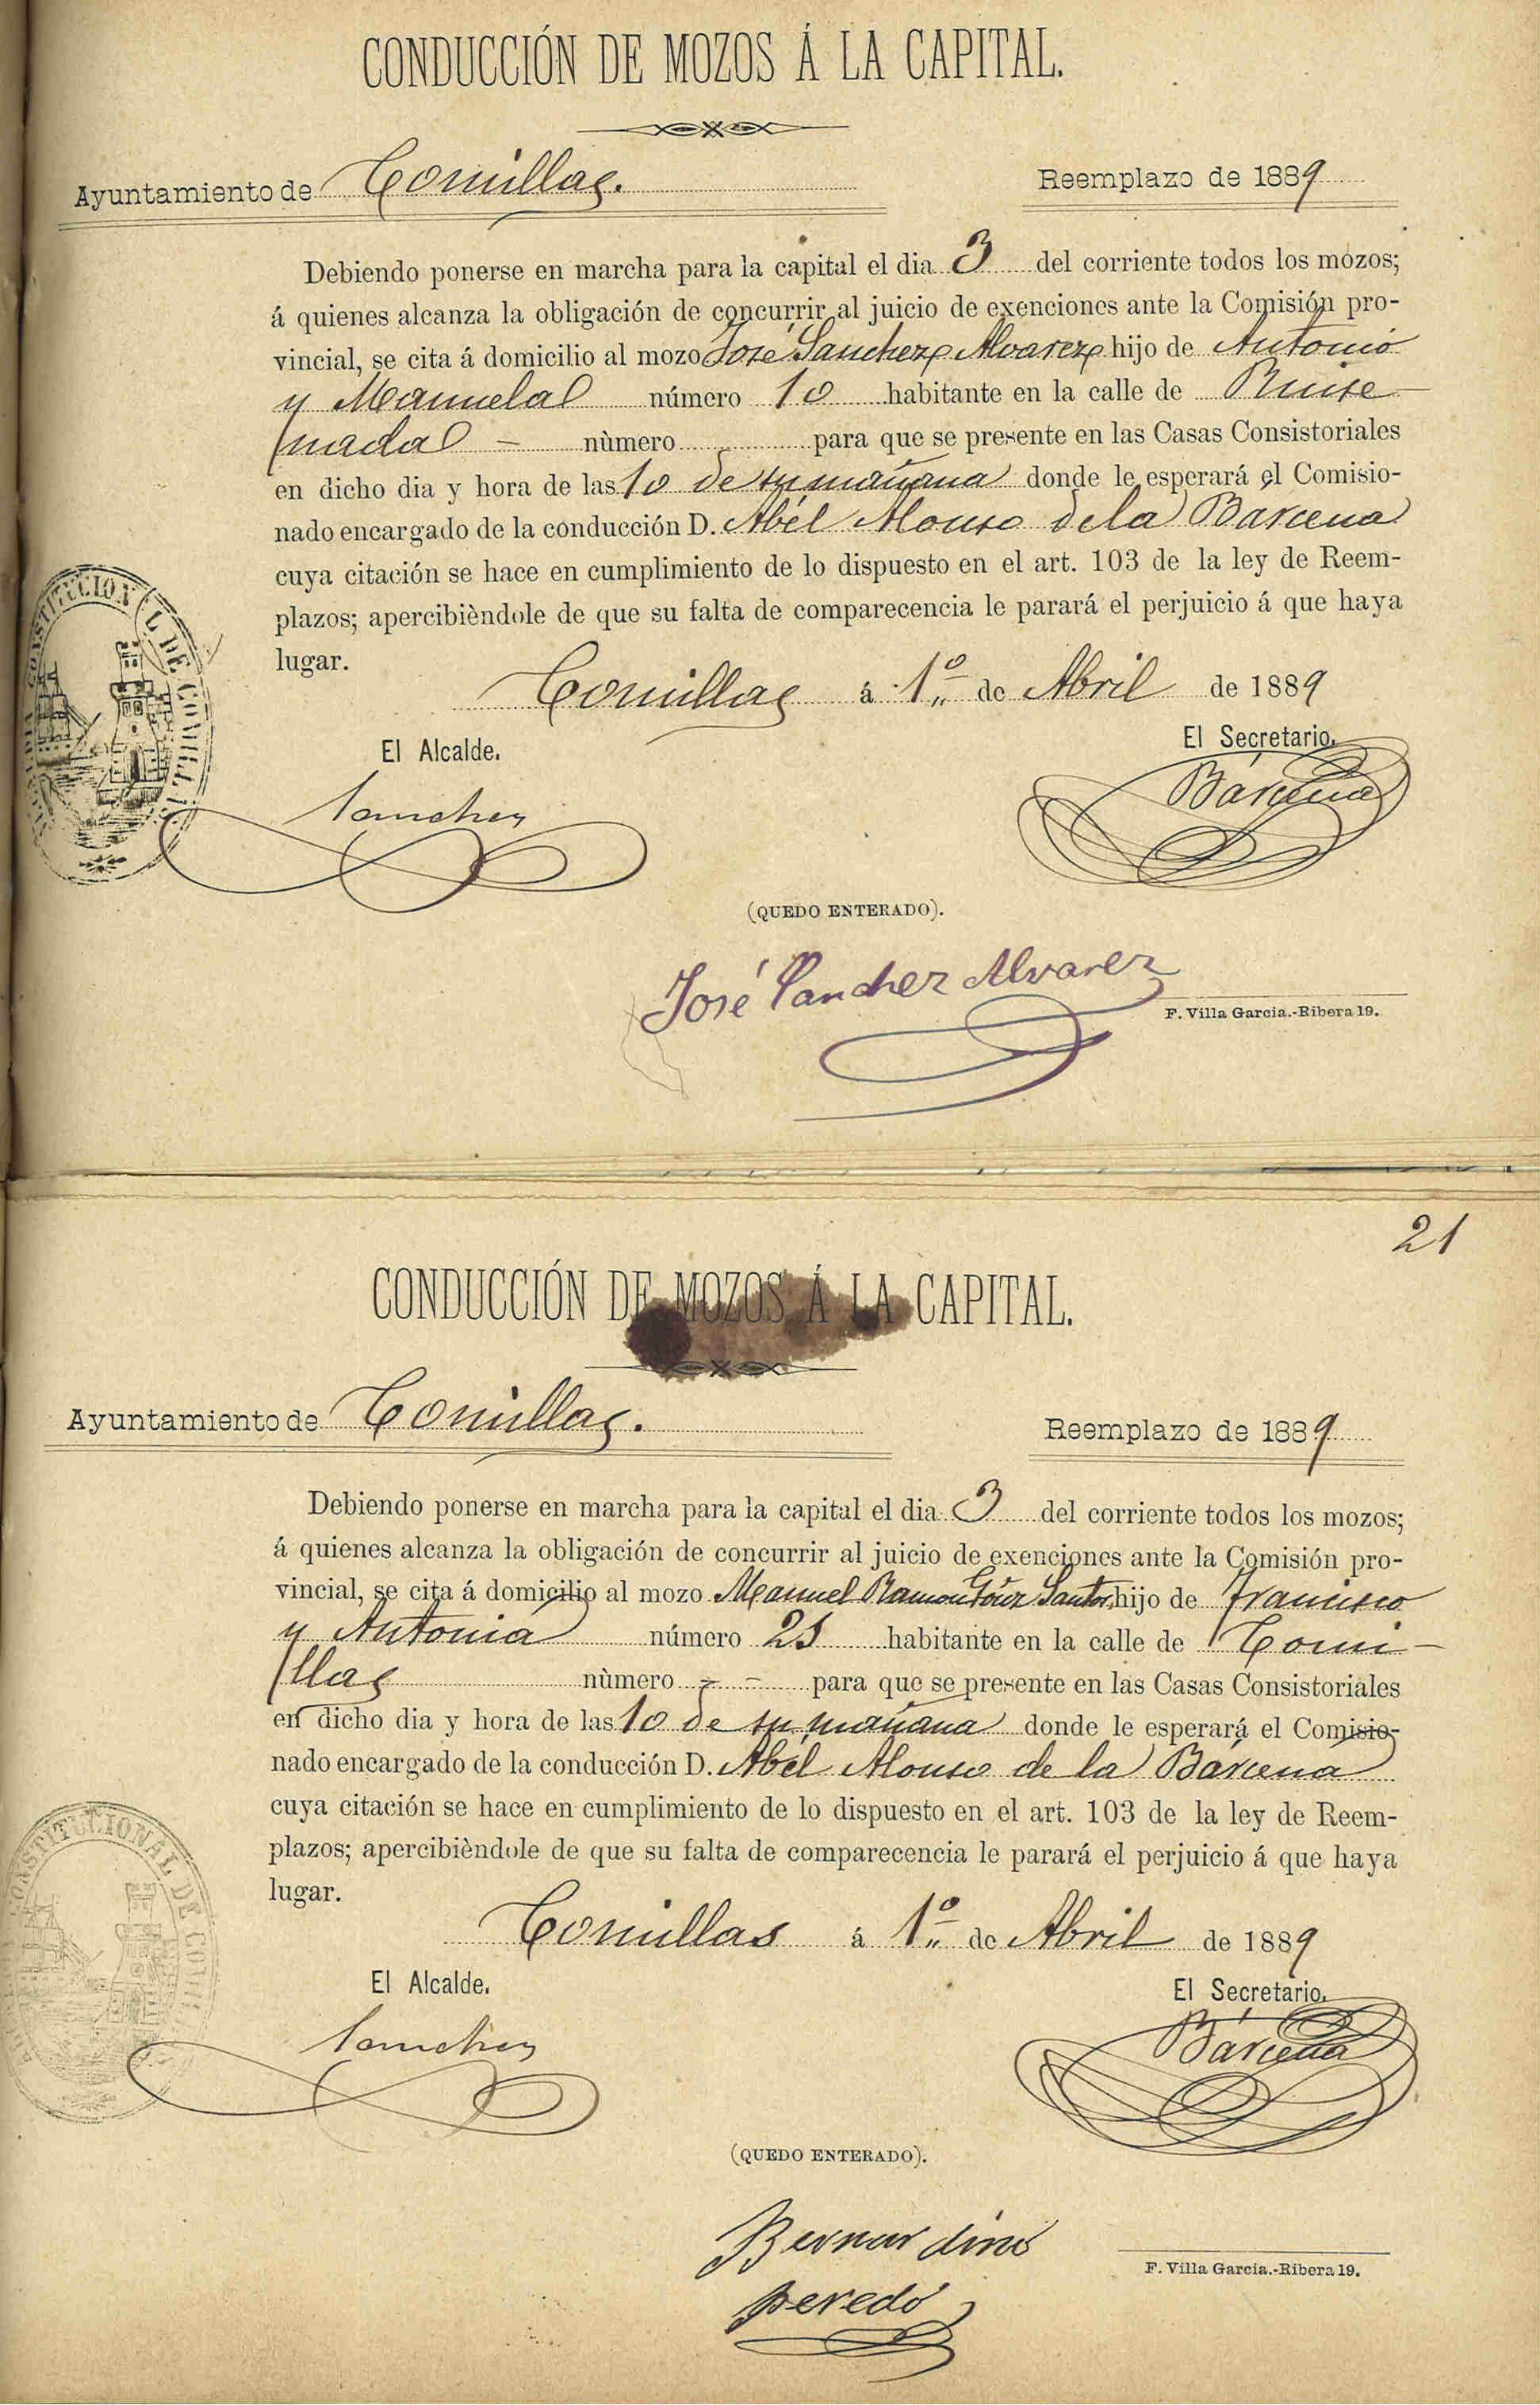 CONDUCCIÓN DE MOZOS Á LA CAPITAL.
Ayuntamiento de Comillas. Reemplazo de 1889
Debiendo ponerse en marcha para la capital el dia 3 del corriente todos los mozos;
á quienes alcanza la obligación de concurrir al juicio de exenciones ante la Comisión pro-
vincial, se cita á domicilio al mozo José Sanchez Alvarez hijo de Antonio
y Manuela número 10 habitante en la calle de Ruise-
ñada - nùmero - para que se presente en las Casas Consistoriales
en dicho dia y hora de las 10 de su mañana donde le esperará el Comisio-
nado encargado de la conducción D. Abél Alonso de la Bárcena
cuya citación se hace en cumplimiento de lo dispuesto en el art. 103 de la ley de Reem-
plazos; apercibièndole de que su falta de comparecencia le parará el perjuicio á que haya
lugar.
Comillas á 1º de Abril de 1889
El Alcalde. El Secretario.
Sanchez Bárcena
(QUEDO ENTERADO).
José Sanchez Alvarez
F. Villa Garcia.-Ribera 19.
21
CONDUCCIÓN DE MOZOS Á LA CAPITAL.
Ayuntamiento de Comillas. Reemplazo de 1889
Debiendo ponerse en marcha para la capital el dia 3 del corriente todos los mozos;
á quienes alcanza la obligación de concurrir al juicio de exenciones ante la Comisión pro-
vincial, se cita á domicilio al mozo Manuel Ramon Santos hijo de Francisco
y Antonia número habitante en la calle de Comi-
llas nùmero - - para que se presente en las Casas Consistoriales
en dicho dia y hora de las 10 de su mañana donde le esperará el Comisio-
nado encargado de la conducción D. Abél Alonso de la Bárcena
cuya citación se hace en cumplimiento de lo dispuesto en el art. 103 de la ley de Reem-
plazos; apercibièndole de que su falta de comparecencia le parará el perjuicio á que haya
lugar.
Comillas á 1º de Abril de 1889
CONSTITUCIONAL DE COMILLAS
El Alcalde. El Secretario.
Sanchez Bárcena
(QUEDO ENTERADO).
Bernardino
peredo
F. Villa Garcia.-Ribera 19.